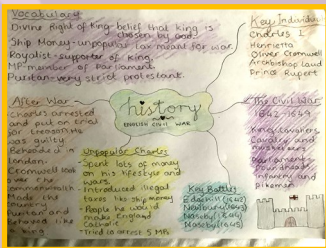 Vocabulary
Divine Right of King-belief that king is
chosen by God.
Ship Money-unpopular tax meant for war.
Royalist-supporter of king.
MP-member of Parliament.
Puritan-very strict protestant.
Key Individ
Charles I
Henrietta
Oliver Cromwell
Archbishop Laud
Prince Rupert
history
ENGLISH CIVIL WAR
After War
Charles arrested
and put on trial
for treason. He
was guilty.
Beheaded in
London.
Cromwell took
over the
commonwealth
Made the
country
Puritan and
behaved like
king
Unpopular Charles
-Spent lots of money
on his lifestyle and
wars.
-Introduced illegal
taxes like ship money
-People he would
make England
Catholic
-Tried to arrest 5 MPs
Key Battles
Edgehill (1642)
Newbury (1643)
Naseby (1645)
The Civil War
1642-1649
Cavaliers
cavalry and
musketeers
Parliament
Roundheads
infantry and
pikeman